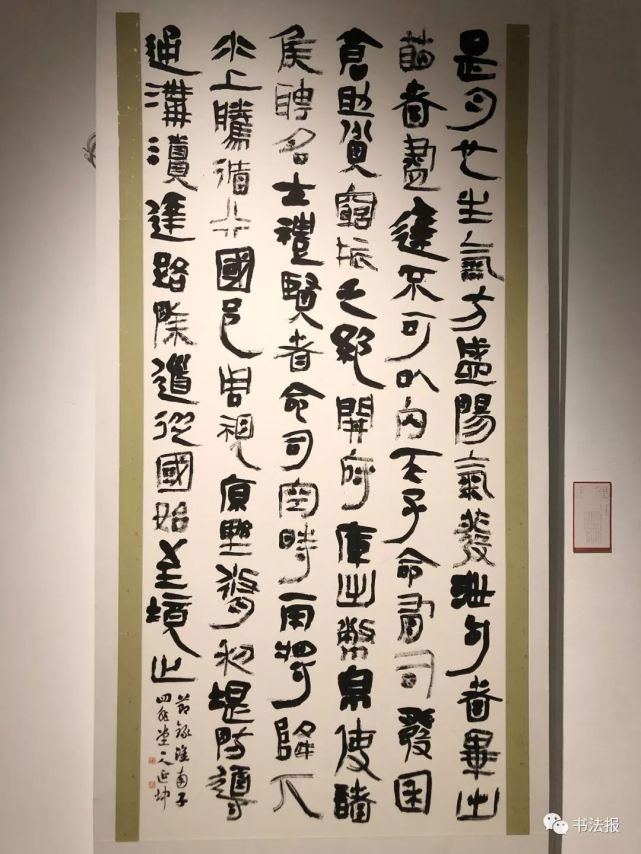 是月也生氣方盛陽氣發泄句者畢出
萌者盡達不可以内天子命有司發囷
倉助貧窮振乏絕開府庫出幣帛使諸
侯聘名士禮賢者命司空時雨將降下
水上騰循行國邑周視原野修利堤防導
通溝瀆達路除道從國始至境止
節錄淮南子
书法报